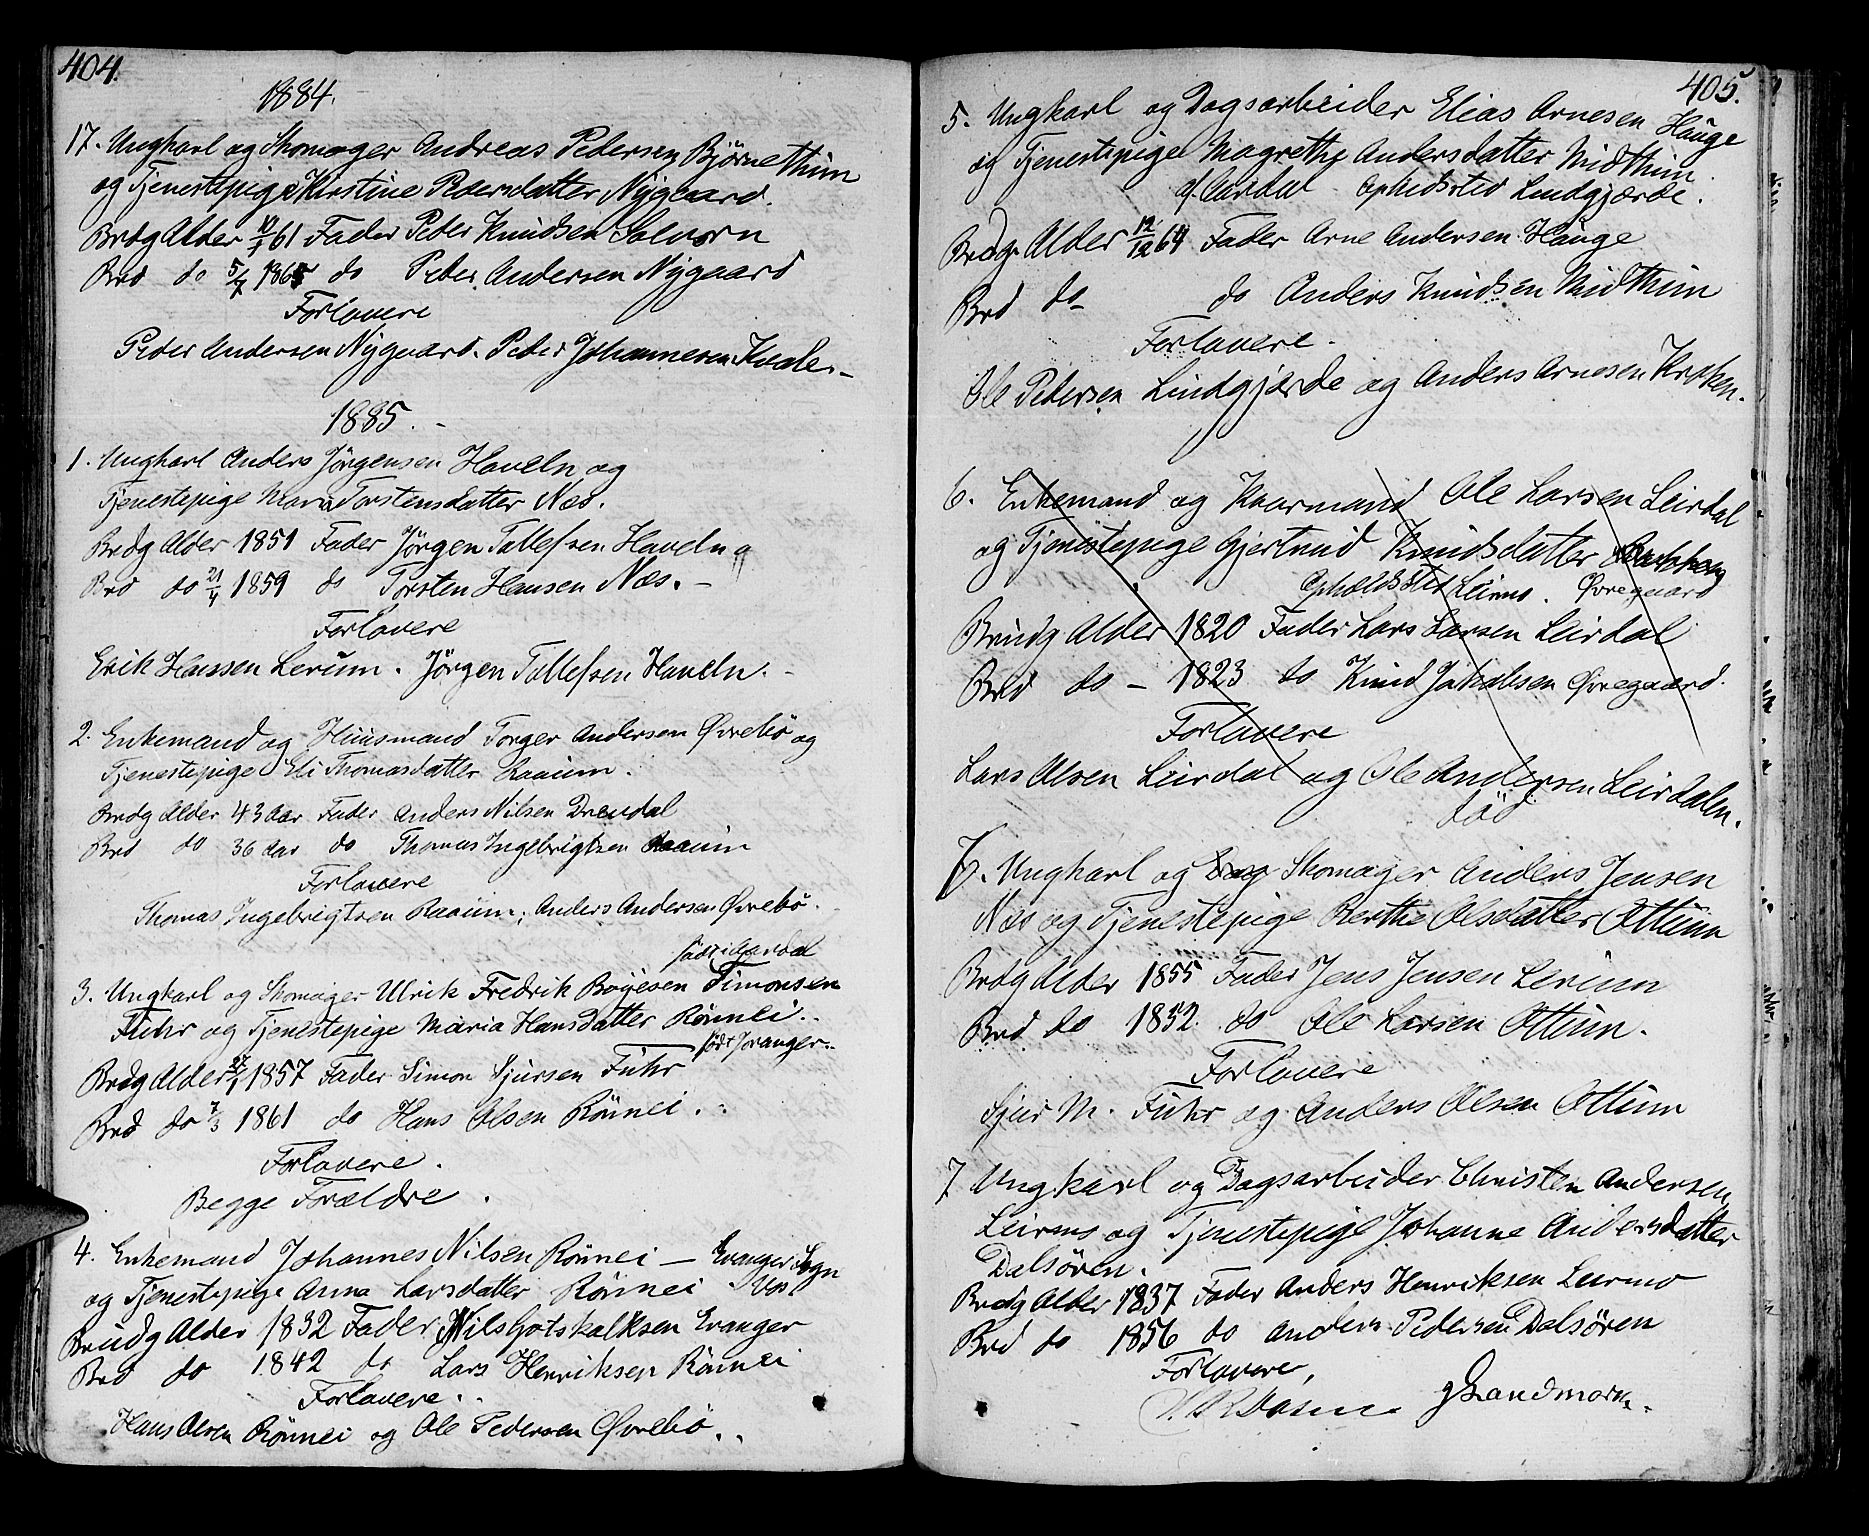 404.
1884.
17. Ungkarl og Skomager Andreas Pedersen Bjørnethun
og Tjenestepige Kirstine Pedersdatter Nygaard.
Brdg Alder 61 Fader Peder Knudsen Solvorn
Brd do 5/7 1865 do Peder Andersen Nygaard
Forlovere
Peder Andersen Nygaard. Peder Johannesen Kvale. –
1885. –
1. Ungkarl Anders Jörgensen Haveln og
Tjenestepige Mari Torstensdatter Næs.
Brdg Alder 1851 Fader Jörgen Tollefsen Haveln
Brd do 21/4 1859 do Torsten Hansen Næs. –
Forlovere
Erik Hansen Lerum. Jörgen Tollefsen Haveln. –
2. Enkemand og Huusmand Torger Andersen Øvrebö og
Tjenestepige Eli Thomasdatter Raaum.
Brdg Alder 43 Aar Fader Anders Nilsen Drendal
Brd do 36 Aar do Thomas Ingebrigtsen Raaum
Forlovere
Thomas Ingebrigtsen Raaum; Anders Andersen Øvrebö.
født i Aardal
3. Ungkarl og Skomager Ulrik Fredrik Bøyesen Simonsen
Fuhr og Tjenestepige Maria Hansdatter Rönnei.
født Joranger.
Brdg Alder 1857 Fader Simon Sjursen Fuhr
Brd do 7/3 1861 do Hans Olsen Rönnei.
Forlovere.
Begge Forældre.
4. Enkemand Johannes Nilsen Rönnei – Evanger Sogn
og Tjenestepige Anna Larsdatter Rönnei Vos
Brudg Alder 1832 Fader Nils Gotskalksen Evanger
Brd do 1842 do Lars Henriksen Rönnei
Forlovere.
Hans Olsen Rönnei og Ole Pedersen Øvrebö.
405.
5. Ungkarl og Dagsarbeider Elias Arnesen Hauge
og Tjenestepige Magrethe Andersdatter Midthun.
af Aardal Opholdsted Lindgjærde.
Brdg Alder 12/12 64 Fader Arne Andersen Hauge
Brd do – do Anders Knudsen Midthun
Forlovere.
Ole Pedersen Lindgjærde og Anders Arnesen Kroken.
6. Enkemand og Kaarmand Ole Larsen Leirdal
og Tjenestepige Gjertrud Knudsdatter
Opholdssted Leirmo. Øvregaard
Brudg Alder 1820 Fader Lars Larsen Leirdal
Brd do – 1823 do Knud Jakobsen Øvregaard.
Forlovere
Lars Olsen Leirdal og Ole Andersen Leirdalen.
död
6. Ungkarl og Skomager Anders Jensen
Næs og Tjenestepige Berthe Olsdatter Ottum
Brdg Alder 1855 Fader Jens Jensen Lerum
Brd do 1852. do Ole Larsen Ottum.
Forlovere
Sjur M. Fuhr og Anders Olsen Ottum
7 Ungkarl og Dagsarbeider Christen Andersen
Leirmo og Tjenestepige Johanne Andersdatter
Dalsören.
Brdg Alder 1837 Fader Anders Henriksen Leirmo
Brd do 1856 do Anders Pedersen Dalsören
Forlovere,
Sandmark.